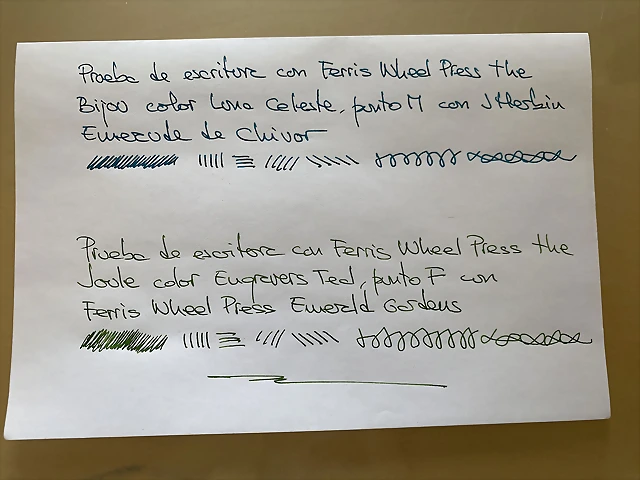 Prueba de escritura con Ferris Wheel Press the
Bijou color Luna Celeste, punto M con J Herbin
Emeraude de Chivor
Prueba de escritura con Ferris Wheel Press the
Joule color Engravers Teal, punto F con
Ferris Wheel Press Emerald Gardens